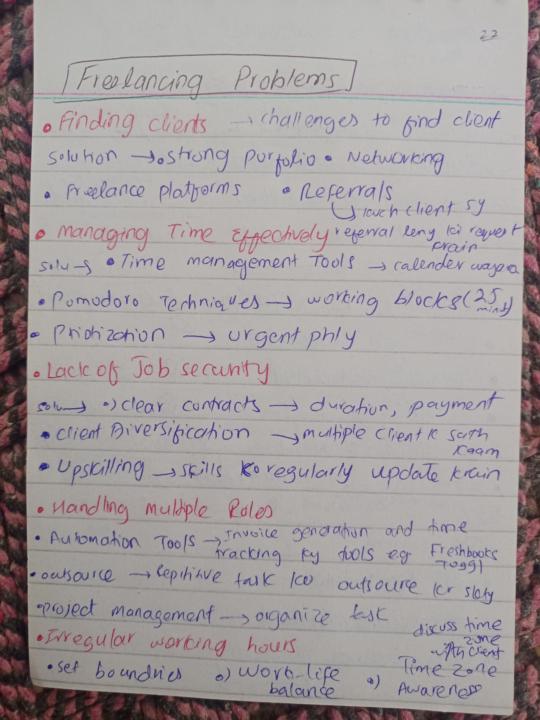 27
Freelancing Problems
• Finding clients → challenges to find client
solution → • strong purfolio • Networking
• Freelance platforms • Referrals
client sy
• Managing Time Effectively referral leny ki request krain
solu → • Time management Tools → calender wagera
• Pomodoro Techniques → working blocks (25 mints)
• Priotization → urgent phly
• Lack of Job security
solu → •) clear contracts → duration, payment
• Client Diversification → multiple client k sath kaam
• Upskilling → skills ko regularly update krain
• Handling multiple Roles
• Automation Tools → Invoice generation and time
tracking ky tools eg Freshbooks Toggl
• outsource → repititive task ko outsource kr skty
• project management → organize task
discuss time zone with client
• Irregular working hours
• set boundries •) Work-life balance •) Time zone Awareness